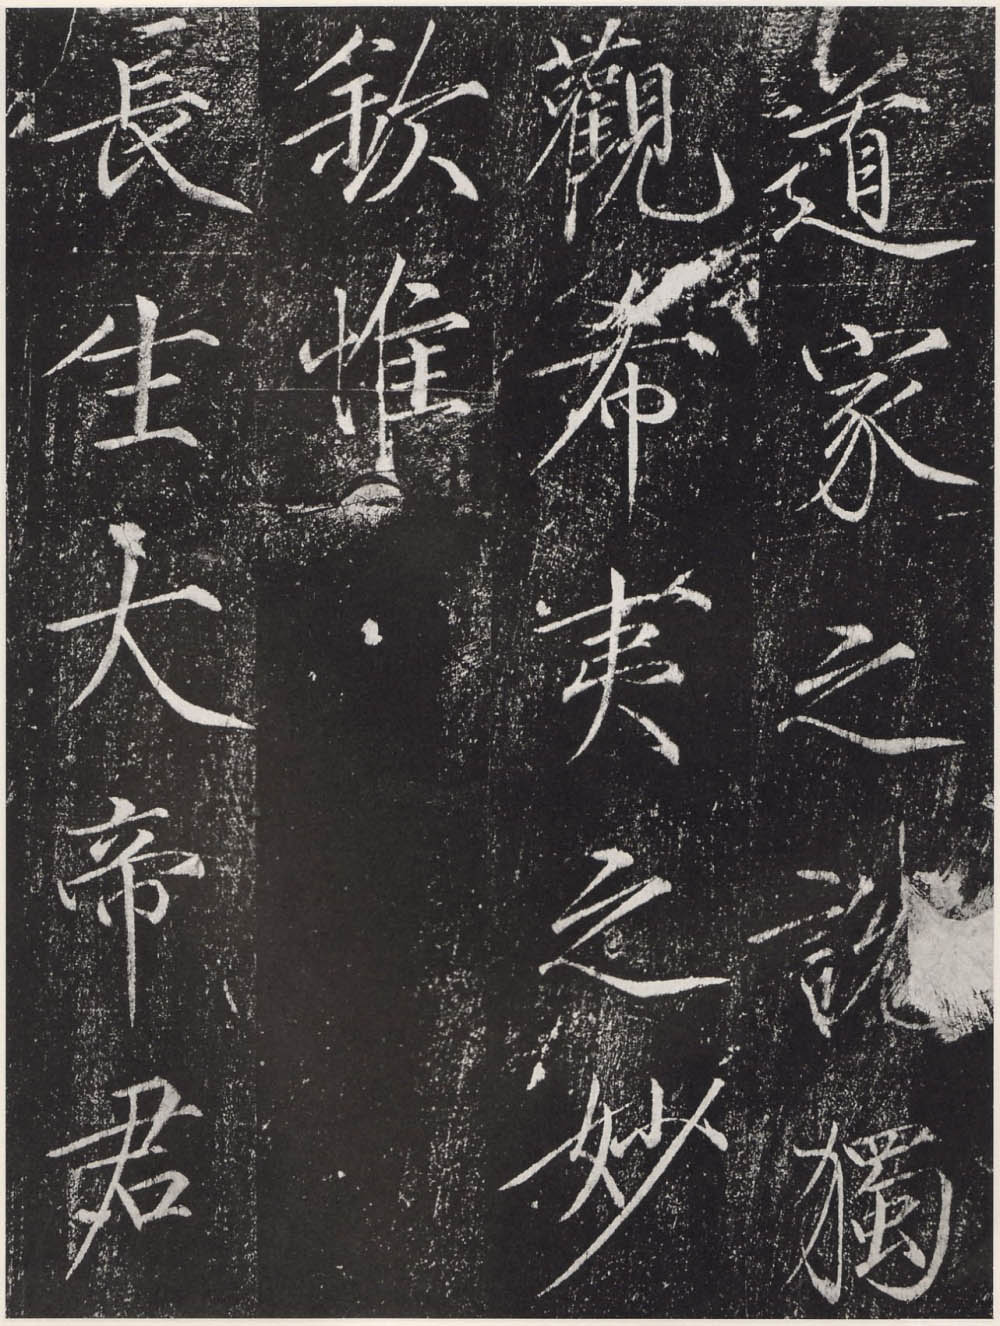 道家之說獨
觀希夷之妙
欽惟
長生大帝君